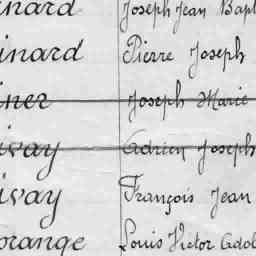 inard Joseph Jean Bapt
inard Pierre Joseph
iner Joseph Marie
ivay Adrien Joseph
ivay François Jean
orange Louis Victor Adol